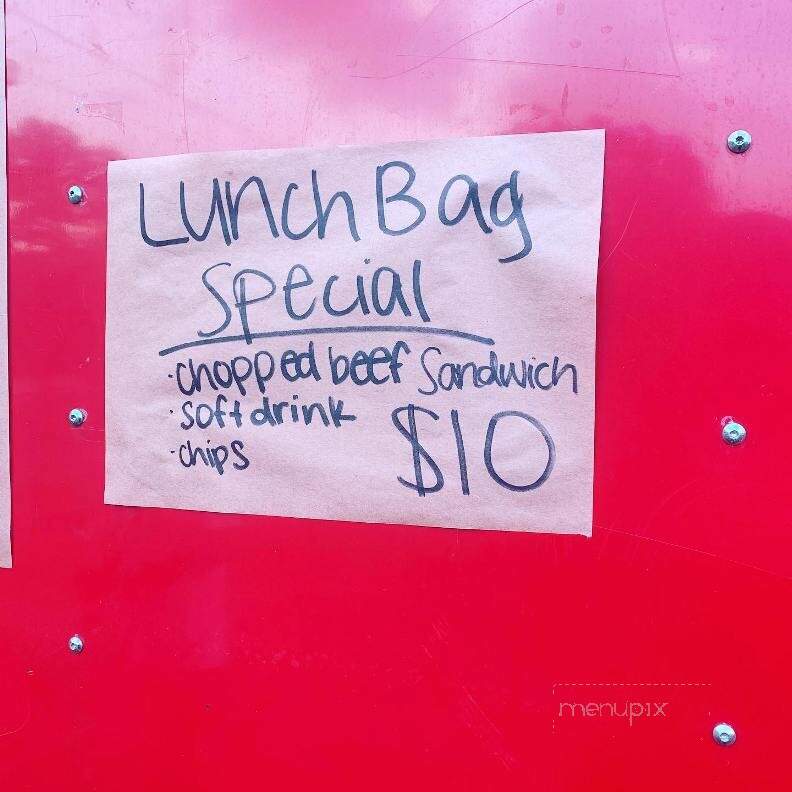 Lunch Bag
Special
·chopped beef Sandwich
·soft drink
·chips
$10
menupix